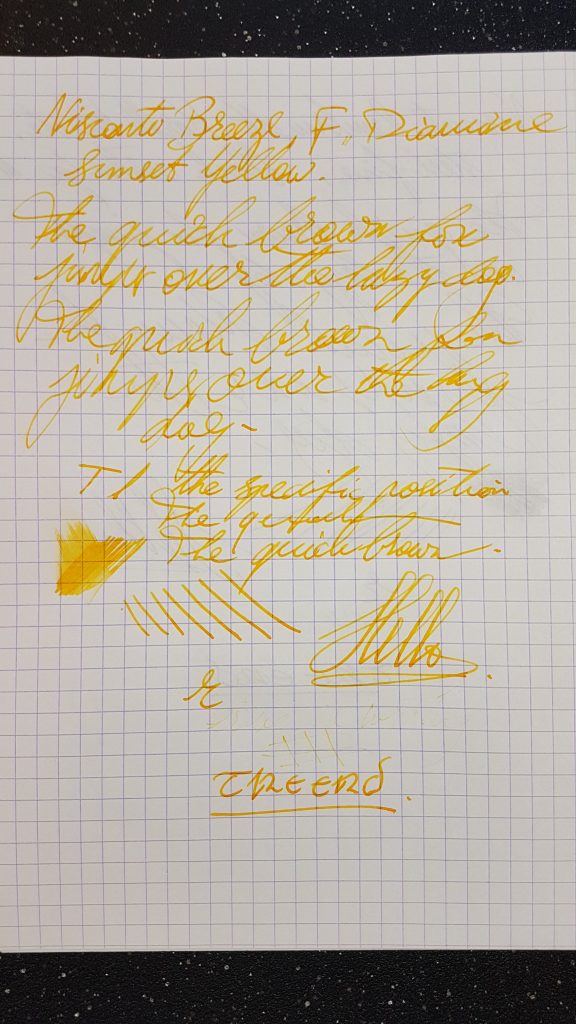 Visconti Breeze, F, Diamine
Sunset Yellow.
The quick brown fox
jumps over the lazy dog.
The quick brown fox
jumps over the lazy
dog-
The specific position
The
The quick brown.
Hello.
r